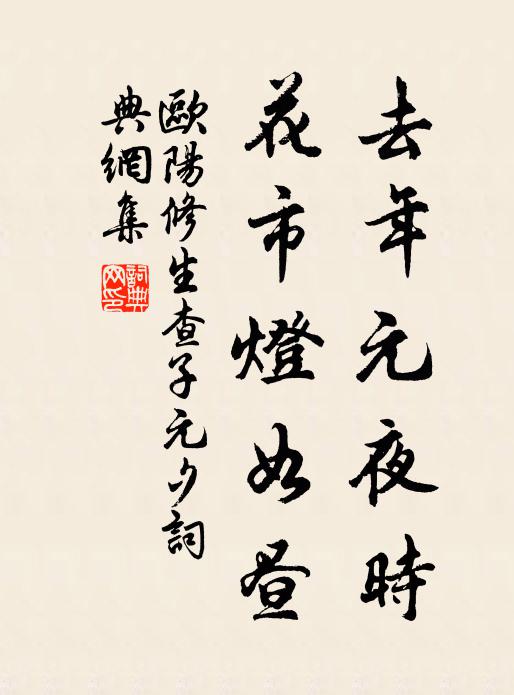 去年元夜時
花市燈如昼
歐陽修生查子元夕詞
典網集
詞典
网印